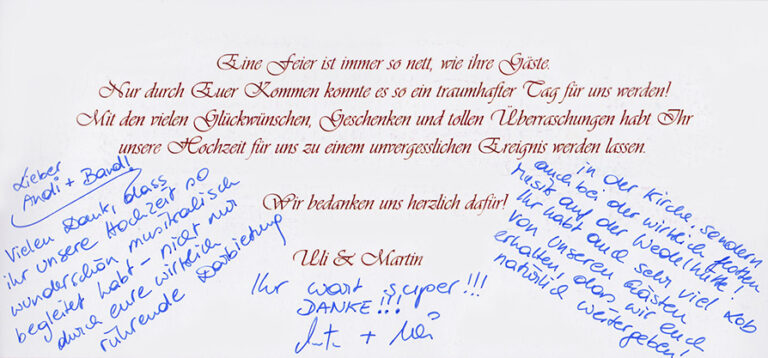 Eine Feier ist immer so nett, wie ihre Gäste.
Nur durch Euer Kommen konnte es so ein traumhafter Tag für uns werden!
Mit den vielen Glückwünschen, Geschenken und tollen Überraschungen habt Ihr
unsere Hochzeit für uns zu einem unvergesslichen Ereignis werden lassen.
Wir bedanken uns herzlich dafür!
Uli & Martin
Lieber
Andi + Band!
Vielen Dank, dass
ihr unsere Hochzeit so
wunderschön musikalisch
begleitet habt – nicht nur
durch eure wirklich
rührende Darbietung
in der Kirche, sondern
auch bei der wirklich flotten
Musik auf der Wedelhütte!
Ihr habt auch sehr viel Lob
von unseren Gästen
erhalten, das wir euch
natürlich weitergeben!
Ihr wart super!!!
DANKE!!!